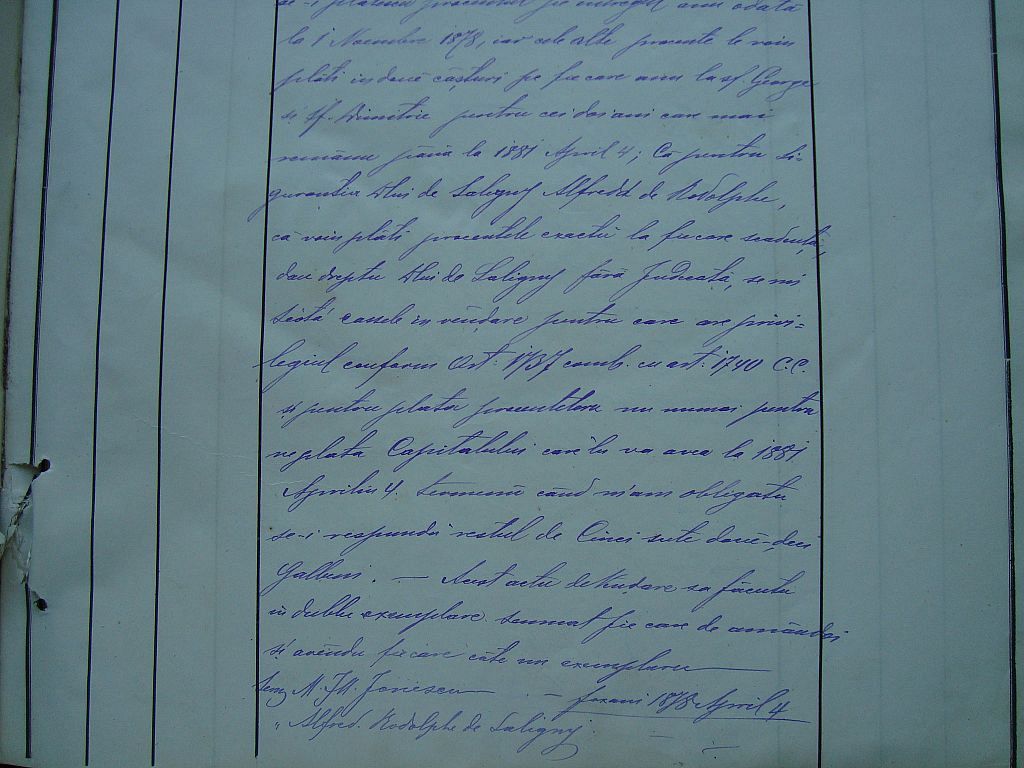 se-i plătescu procentul pe întregul anu odată
la 1 Noembre 1878, iar cele alte procente le voiu
plăti in doue câșturi pe fie care anu la sf. George
si Sf. Dimitrie pentru cei doi ani care mai
remânu până la 1881 April 4; Ca pentru si-
gurantia Dlui de Saligny Alfred de Rodolphe,
că voiu plăti procentele exactu la fie care scadență,
dau dreptu Dlui de Saligny fără Judecată, se mi
scótă casele in vêndare pentru care are privi-
legiul conform Art: 1737 comb. cu art: 1740 C.C.
și pentru plata procentelor nu numai pentru
neplata Capitalului care 'lu va avea la 1881
Aprilie 4. termenu când m'am obligatu
se-i respundu restul de Cinci sute doue-deci
Galbeni. — Acest actu de vindare sa făcutu
in dublu exemplare semnat fie care de amândoi
si avêndu fie care câte un exemplaru
semz M. Il. Ionescu — Focsani 1878 April 4
" Alfred Rodolphe de Saligny